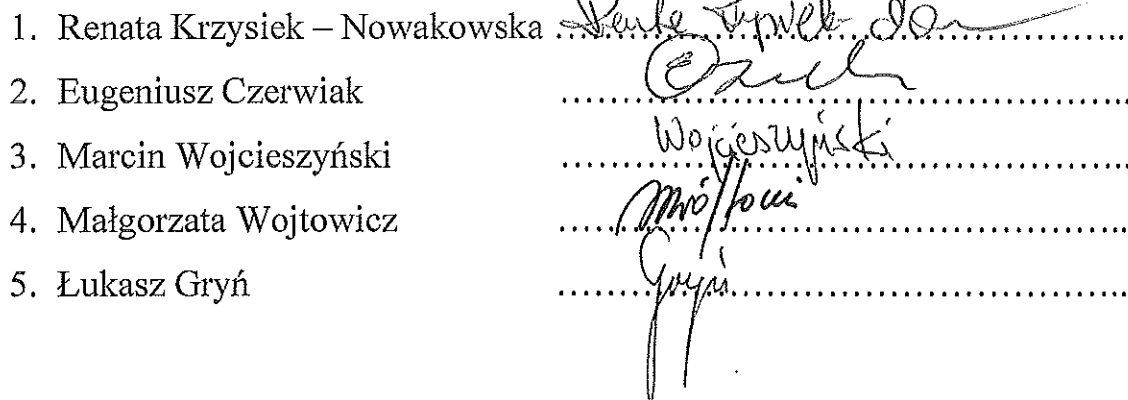 1. Renata Krzysiek – Nowakowska ..............................
2. Eugeniusz Czerwiak ..............................
3. Marcin Wojcieszyński .............................. Wojcieszyński
4. Małgorzata Wojtowicz ..............................
5. Łukasz Gryń .............................. Gryń